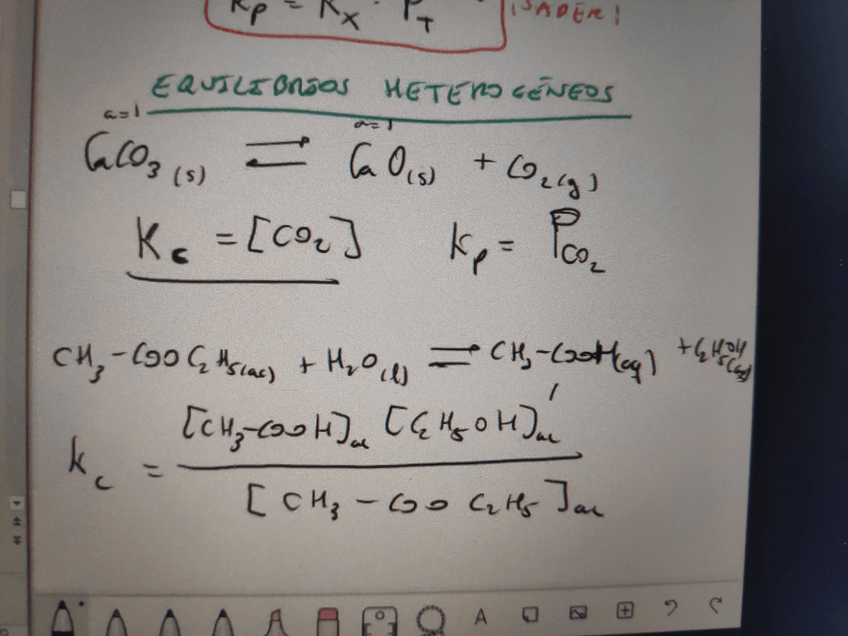 Kp = Kx · PT ¡SABER!
EQUILIBRIOS HETEROGÉNEOS
a=1 a=1
CaCO3 (s) ⇌ CaO(s) + CO2(g)
Kc = [CO2] Kp = PCO2
CH3-COOC2H5(ac) + H2O(l) ⇌ CH3-COOH(aq) + C2H5OH(ac)
[CH3-COOH]ac [C2H5OH]ac
Kc =
[CH3-COO C2H5]ac
A